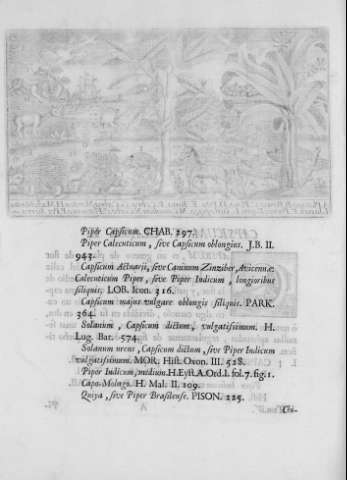 Piper Capsicum. CHAB. 297.
Piper Calecuticum, sive Capsicum oblongius. J.B. II.
943.
Capsicum Actuarii, sive Caninum Zinziber, Avicennæ.
Calecuticum Piper, sive Piper Indicum, longioribus
siliquis. LOB. Icon. 316.
Capsicum majus vulgare oblongis siliquis. PARK.
364.
Solanum, Capsicum dictum, vulgatissimum. H.
Lug. Bat. 574.
Solanum urens, Capsicum dictum, sive Piper Indicum
vulgatissimum. MOR. Hist. Oxon. III. 528.
Piper Indicum, medium. H. Eyst. A. Ord. I. fol. 7. fig. 1.
Capo-Molago. H. Mal. II. 109.
Quiya, sive Piper Brasilense. PISON. 225.